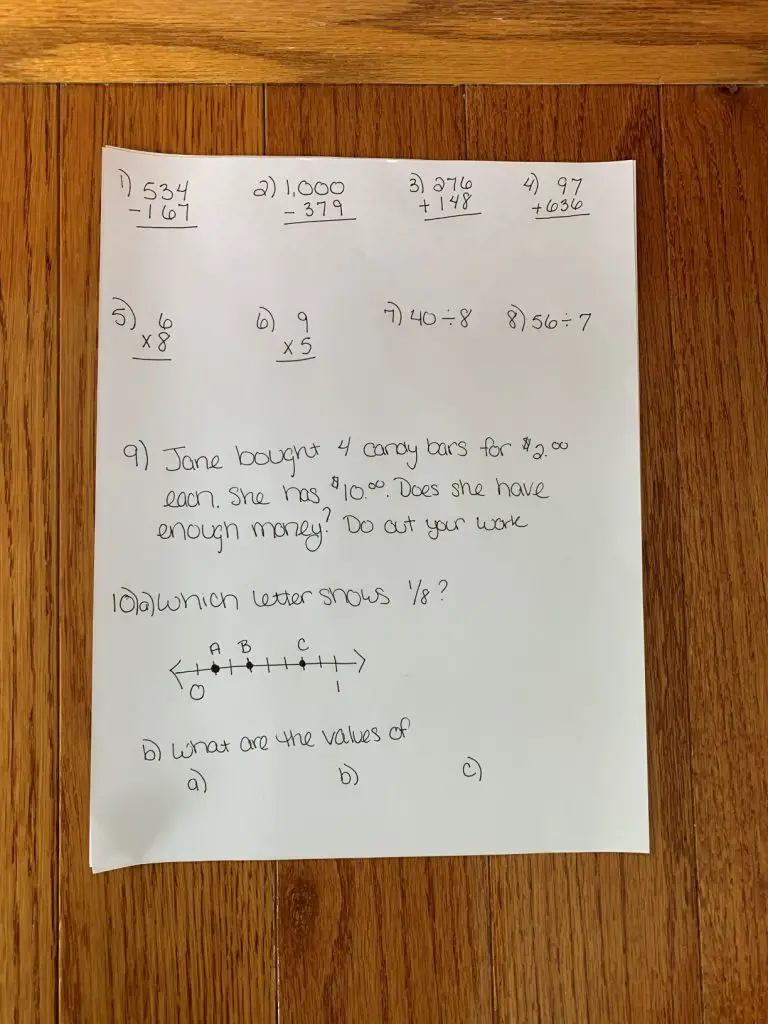 1) 534 2) 1,000 3) 276 4) 97
-167 - 379 + 148 +636
5) 6 6) 9 7) 40÷8 8) 56÷7
x8 x5
9) Jane bought 4 candy bars for $2.00
each. She has $10.00. Does she have
enough money? Do out your work
10)a) Which letter shows 1/8?
A B C
0 1
b) What are the values of
a) b) c)